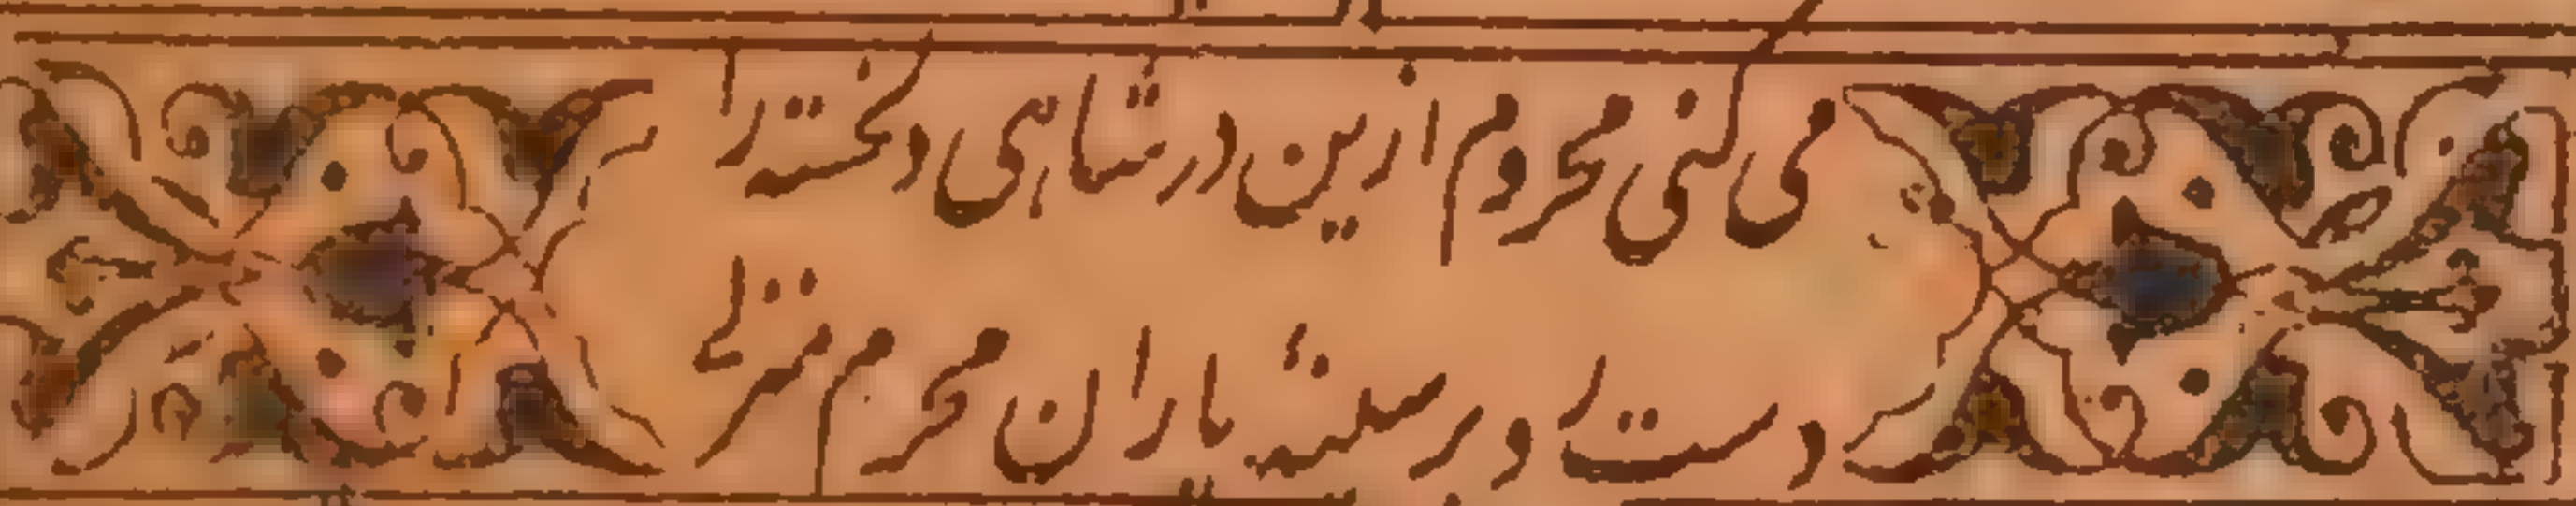 می کنی محروم ازین در شاهی دلخسته را
دست او بر سینه یاران محرم می نهی